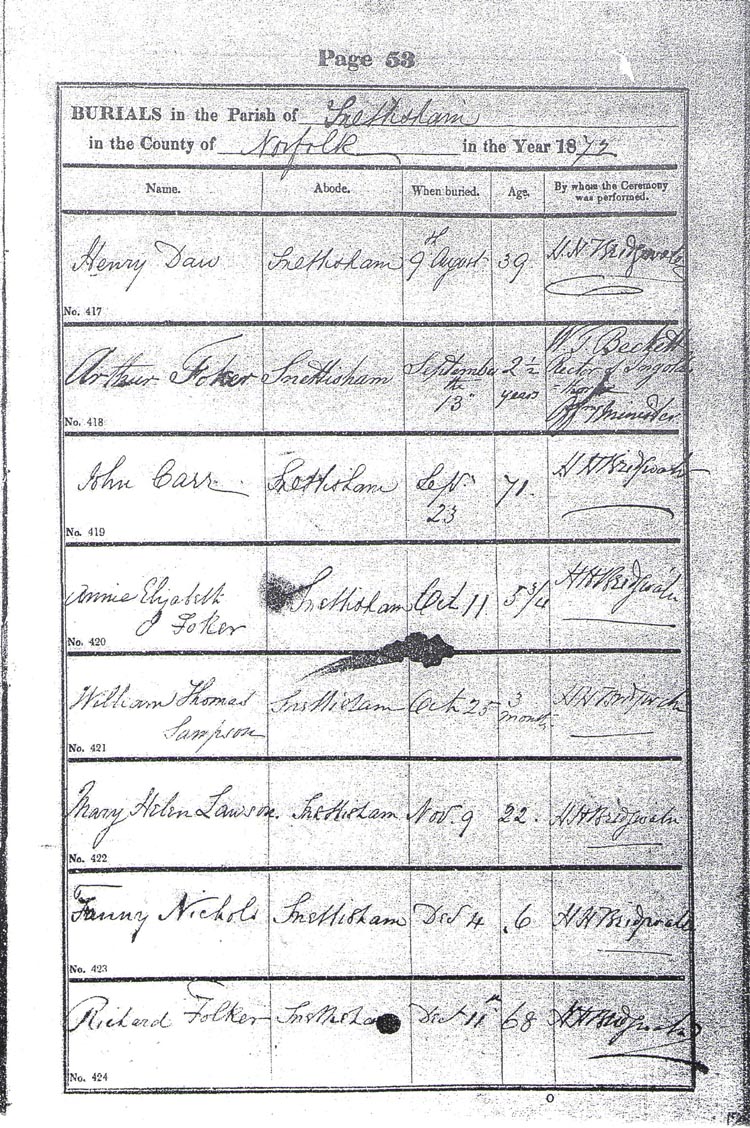 Page 53
BURIALS in the Parish of Snettisham
in the County of Norfolk in the Year 1872
Name. Abode. When buried. Age. By whom the Ceremony was performed.
Henry Daw Snettisham 9th August 39. H.H. Bridgwater
No. 417
Arthur Foker Snettisham September 2½ W. T. Beckett
the years Rector of Ingolds
13th -thorpe
Offg Minister
No. 418
John Carr Snettisham Sept. 71. H H Bridgwater
23
No. 419
Annie Elizabeth Snettisham Oct 11 5 3/4 H H Bridgwater
Foker
No. 420
William Thomas Snettisham Oct 25 3 H H Bridgwater
Sampson months
No. 421
Mary Helen Lawson. Snettisham Nov. 9 22. H H Bridgwater
No. 422
Fanny Nichols Snettisham Dec 4 .6 H H Bridgwater
No. 423
Richard Folker Snettisham Dec 11th 68 H H Bridgwater
No. 424